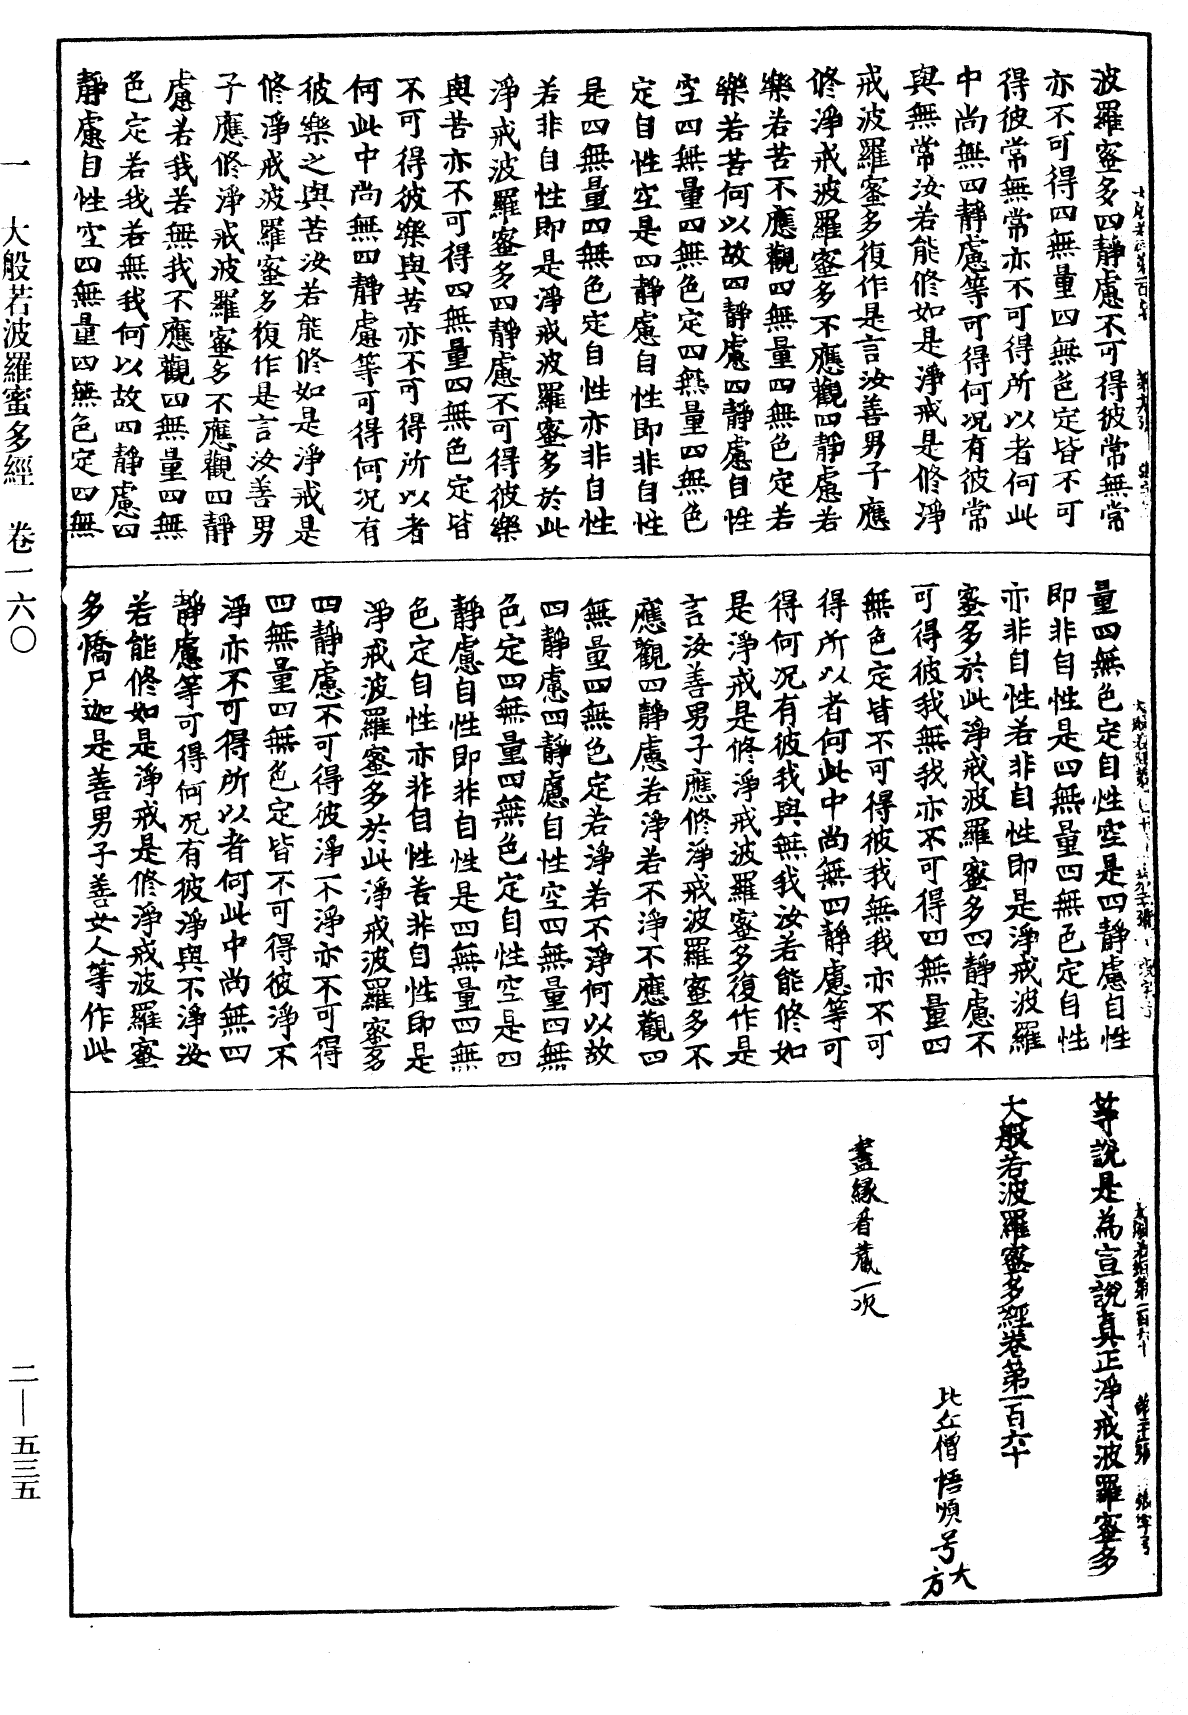 波羅蜜多四靜慮不可得彼常無常
亦不可得四無量四無色定皆不可
得彼常無常亦不可得所以者何此
中尚無四靜慮等可得何况有彼常
與無常汝若能修如是淨戒是修淨
戒波羅蜜多復作是言汝善男子應
修淨戒波羅蜜多不應觀四靜慮若
樂若苦不應觀四無量四無色定若
樂若苦何以故四靜慮四靜慮自性
空四無量四無色定四無量四無色
定自性空是四靜慮自性即非自性
是四無量四無色定自性亦非自性
若非自性即是淨戒波羅蜜多於此
淨戒波羅蜜多四靜慮不可得彼樂
與苦亦不可得四無量四無色定皆
不可得彼樂與苦亦不可得所以者
何此中尚無四靜慮等可得何况有
彼樂之與苦汝若能修如是淨戒是
修淨戒波羅蜜多復作是言汝善男
子應修淨戒波羅蜜多不應觀四靜
慮若我若無我不應觀四無量四無
色定若我若無我何以故四靜慮四
靜慮自性空四無量四無色定四無
量四無色定自性空是四靜慮自性
即非自性是四無量四無色定自性
亦非自性若非自性即是淨戒波羅
蜜多於此淨戒波羅蜜多四靜慮不
可得彼我無我亦不可得四無量四
無色定皆不可得彼我無我亦不可
得所以者何此中尚無四靜慮等可
得何况有彼我與無我汝若能修如
是淨戒是修淨戒波羅蜜多復作是
言汝善男子應修淨戒波羅蜜多不
應觀四靜慮若淨若不淨不應觀四
無量四無色定若淨若不淨何以故
四靜慮四靜慮自性空四無量四無
色定四無量四無色定自性空是四
靜慮自性即非自性是四無量四無
色定自性亦非自性若非自性即是
淨戒波羅蜜多於此淨戒波羅蜜多
四靜慮不可得彼淨不淨亦不可得
四無量四無色定皆不可得彼淨不
淨亦不可得所以者何此中尚無四
靜慮等可得何况有彼淨與不淨汝
若能修如是淨戒是修淨戒波羅蜜
多憍尸迦是善男子善女人等作此
等說是為宣說真正淨戒波羅蜜多
大般若波羅蜜多經卷第一百六十
比丘僧悟順号大方
盡緣看藏一次
一 大般若波羅蜜多經 卷一六〇
二—五三五